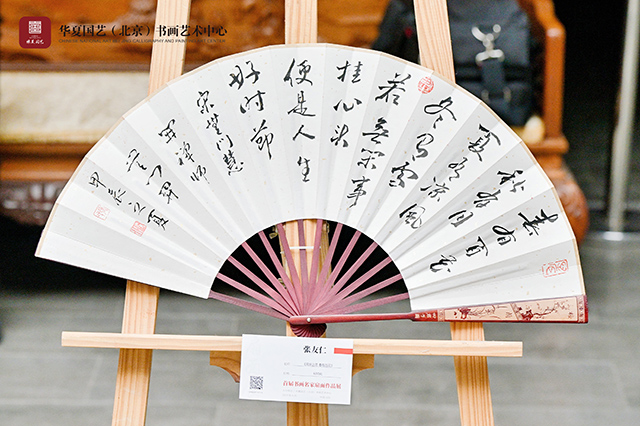 华夏国艺（北京）书画艺术中心
CHINESE NATIONAL ART BEIJING CALLIGRAPHY AND PAINTING ART CENTER
春有百花
秋有月
夏有凉风
冬有雪
若无闲事
挂心头
便是人生
好时节
宋無门慧
开禅师
甲辰之夏
张友仁
首届书画名家扇面作品展